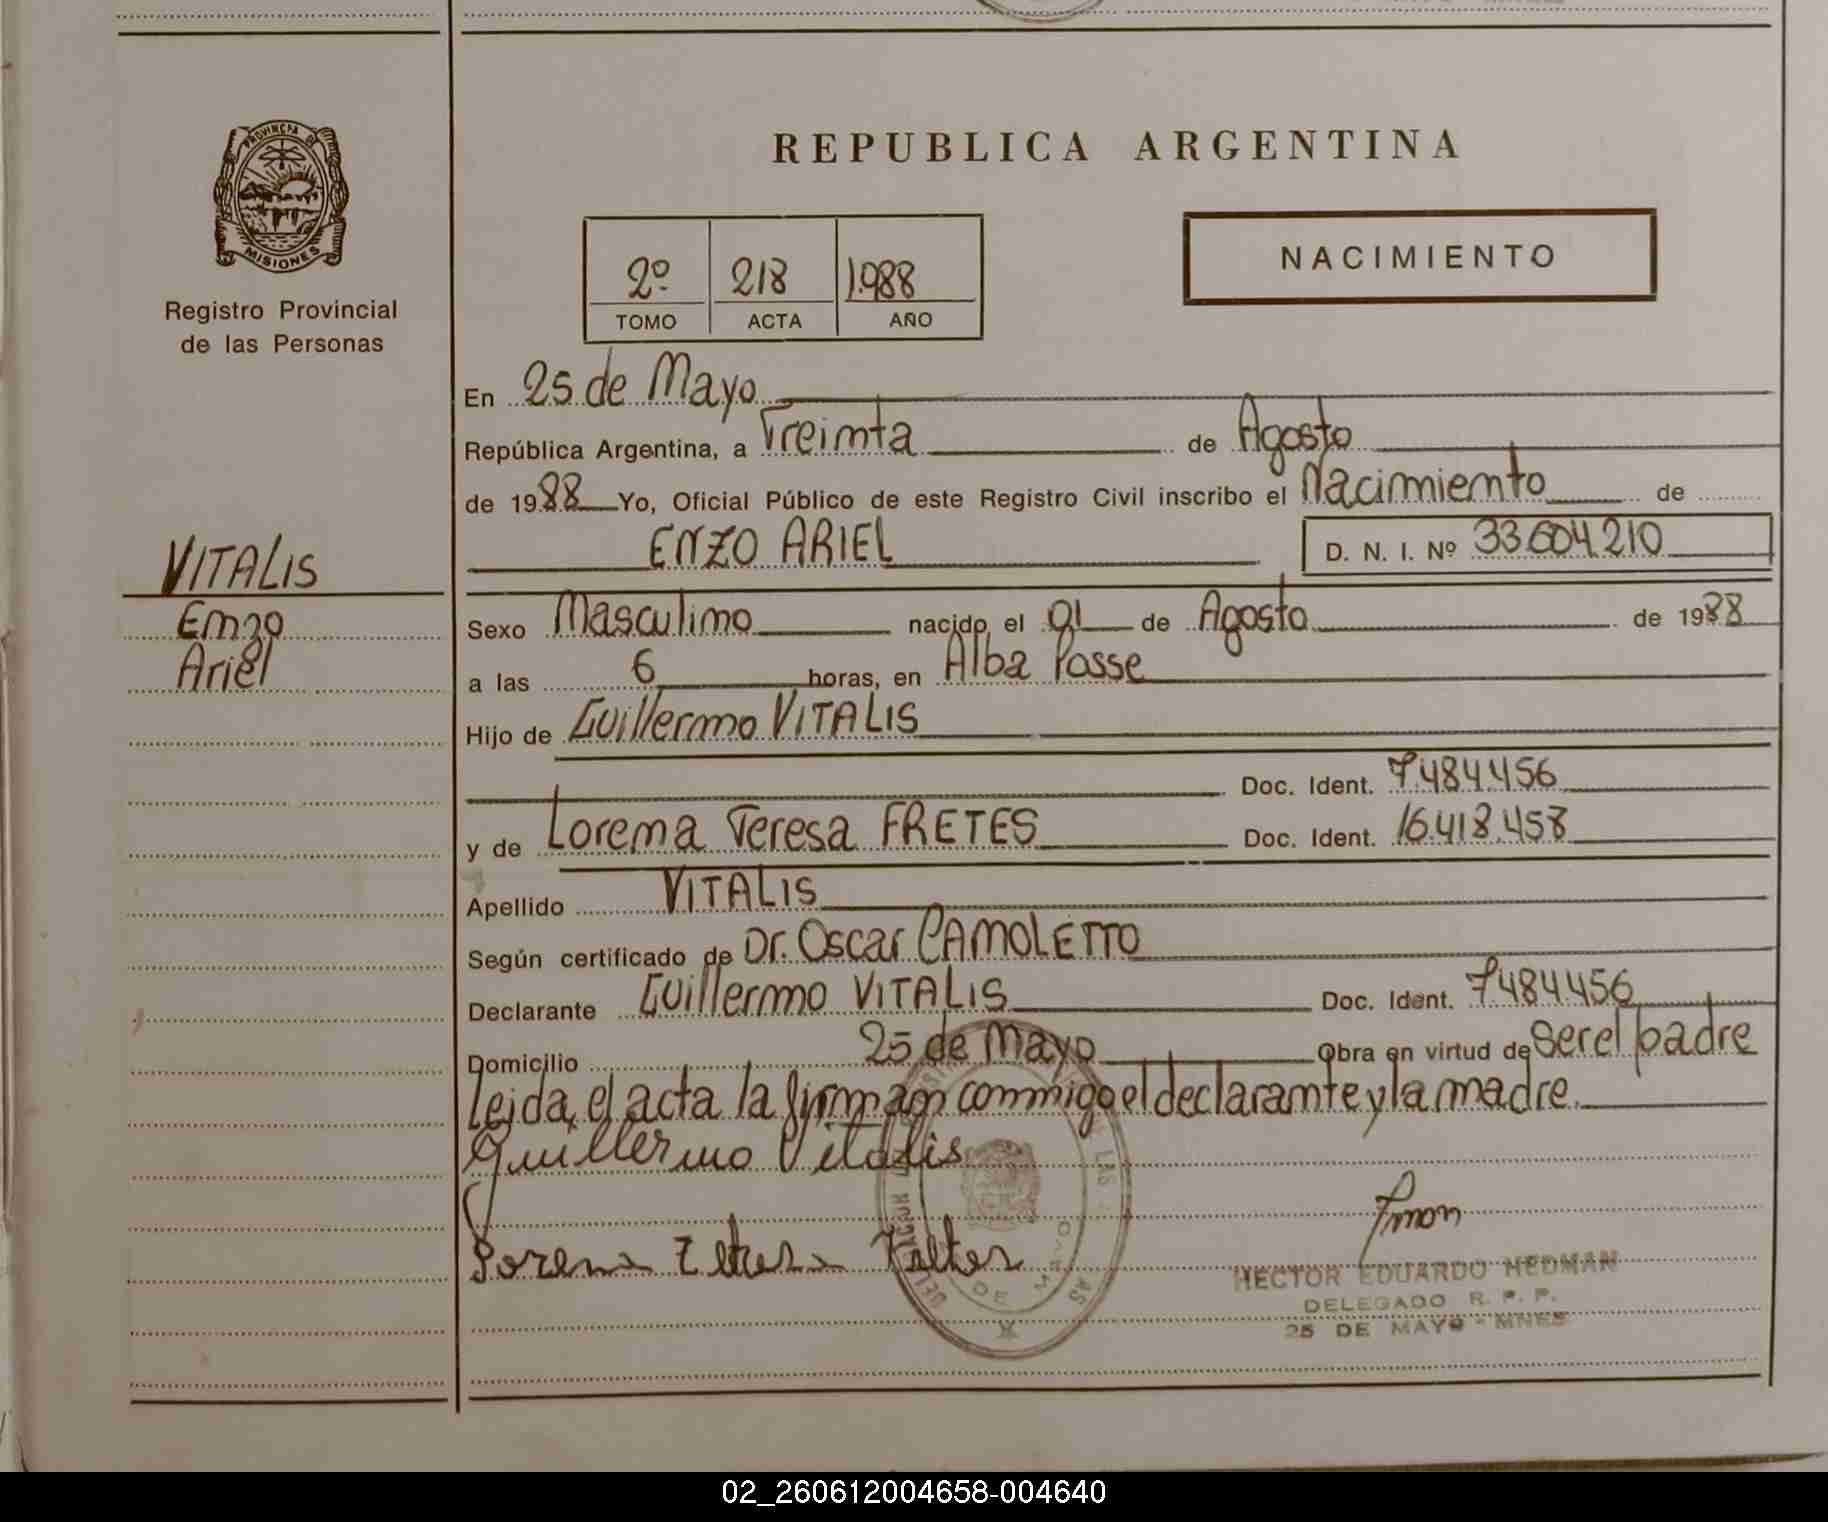 PROVINCIA DE
MISIONES
Registro Provincial
de las Personas
VITALIS
Enzo
Ariel
REPUBLICA ARGENTINA
2º 218 1.988
TOMO ACTA AÑO
NACIMIENTO
En 25 de Mayo
República Argentina, a Treinta de Agosto
de 1988 Yo, Oficial Público de este Registro Civil inscribo el Nacimiento de
ENZO ARIEL D. N. I. Nº 33.604.210
Sexo Masculino nacido el 01 de Agosto de 1988
a las 6 horas, en Alba Posse
Hijo de Guillermo VITALIS
Doc. Ident. 7.484.456
y de Lorena Teresa FRETES Doc. Ident. 16.418.458
Apellido VITALIS
Según certificado de Dr. Oscar CAMOLETTO
Declarante Guillermo VITALIS Doc. Ident. 7484456
Domicilio 25 de Mayo Obra en virtud de ser el padre
Leida el acta la firman conmigo el declarante y la madre.
Guillermo Vitalis
Lorena
HECTOR EDUARDO HEDMAN
DELEGADO R. P. P.
25 DE MAYO - MNES
02_260612004658-004640